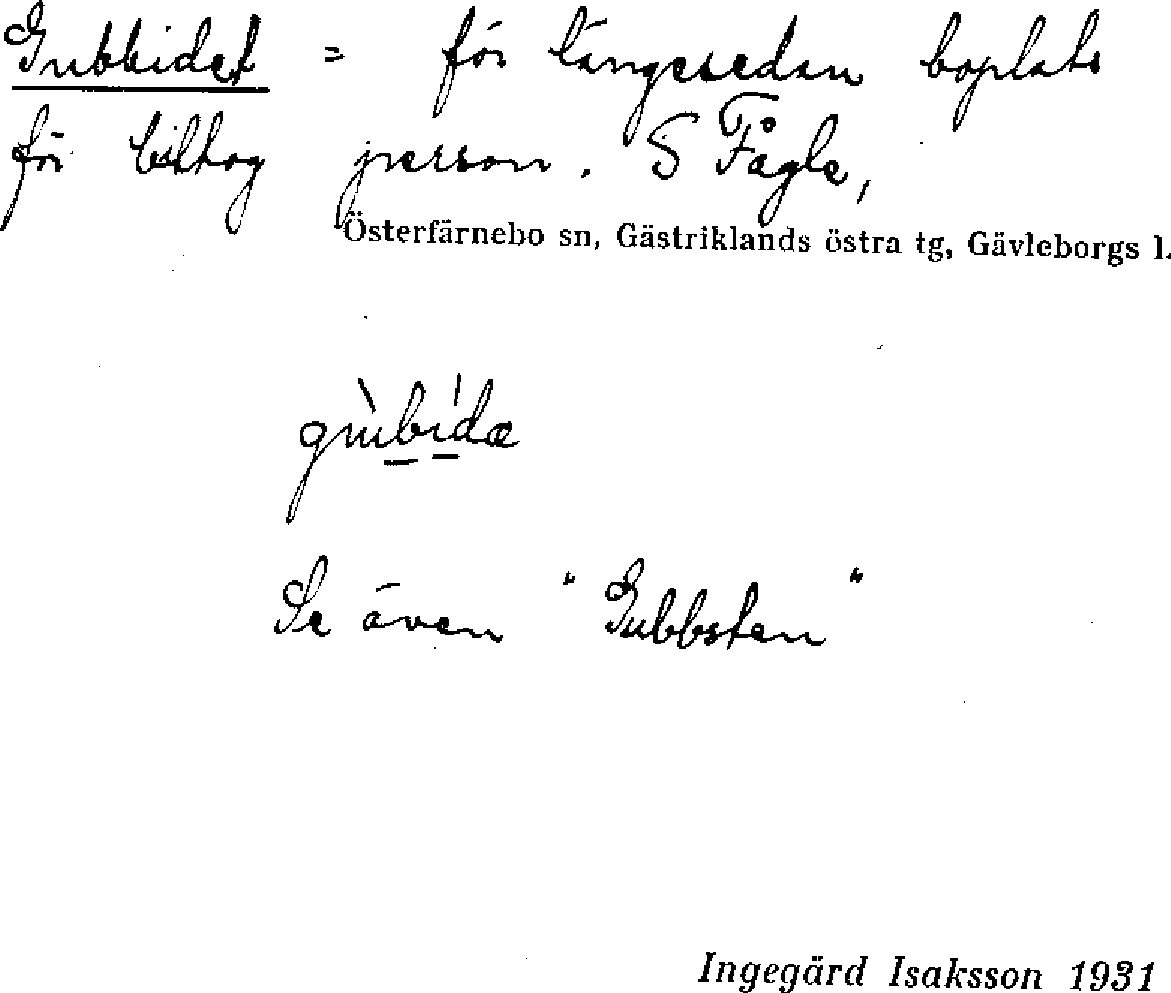 Gubbidet = för längesedan boplats
för biltog person. S Fågle,
Österfärnebo sn, Gästriklands östra tg, Gävleborgs l.
gùbída
Se även "Gubbsten"
Ingegärd Isaksson 1931